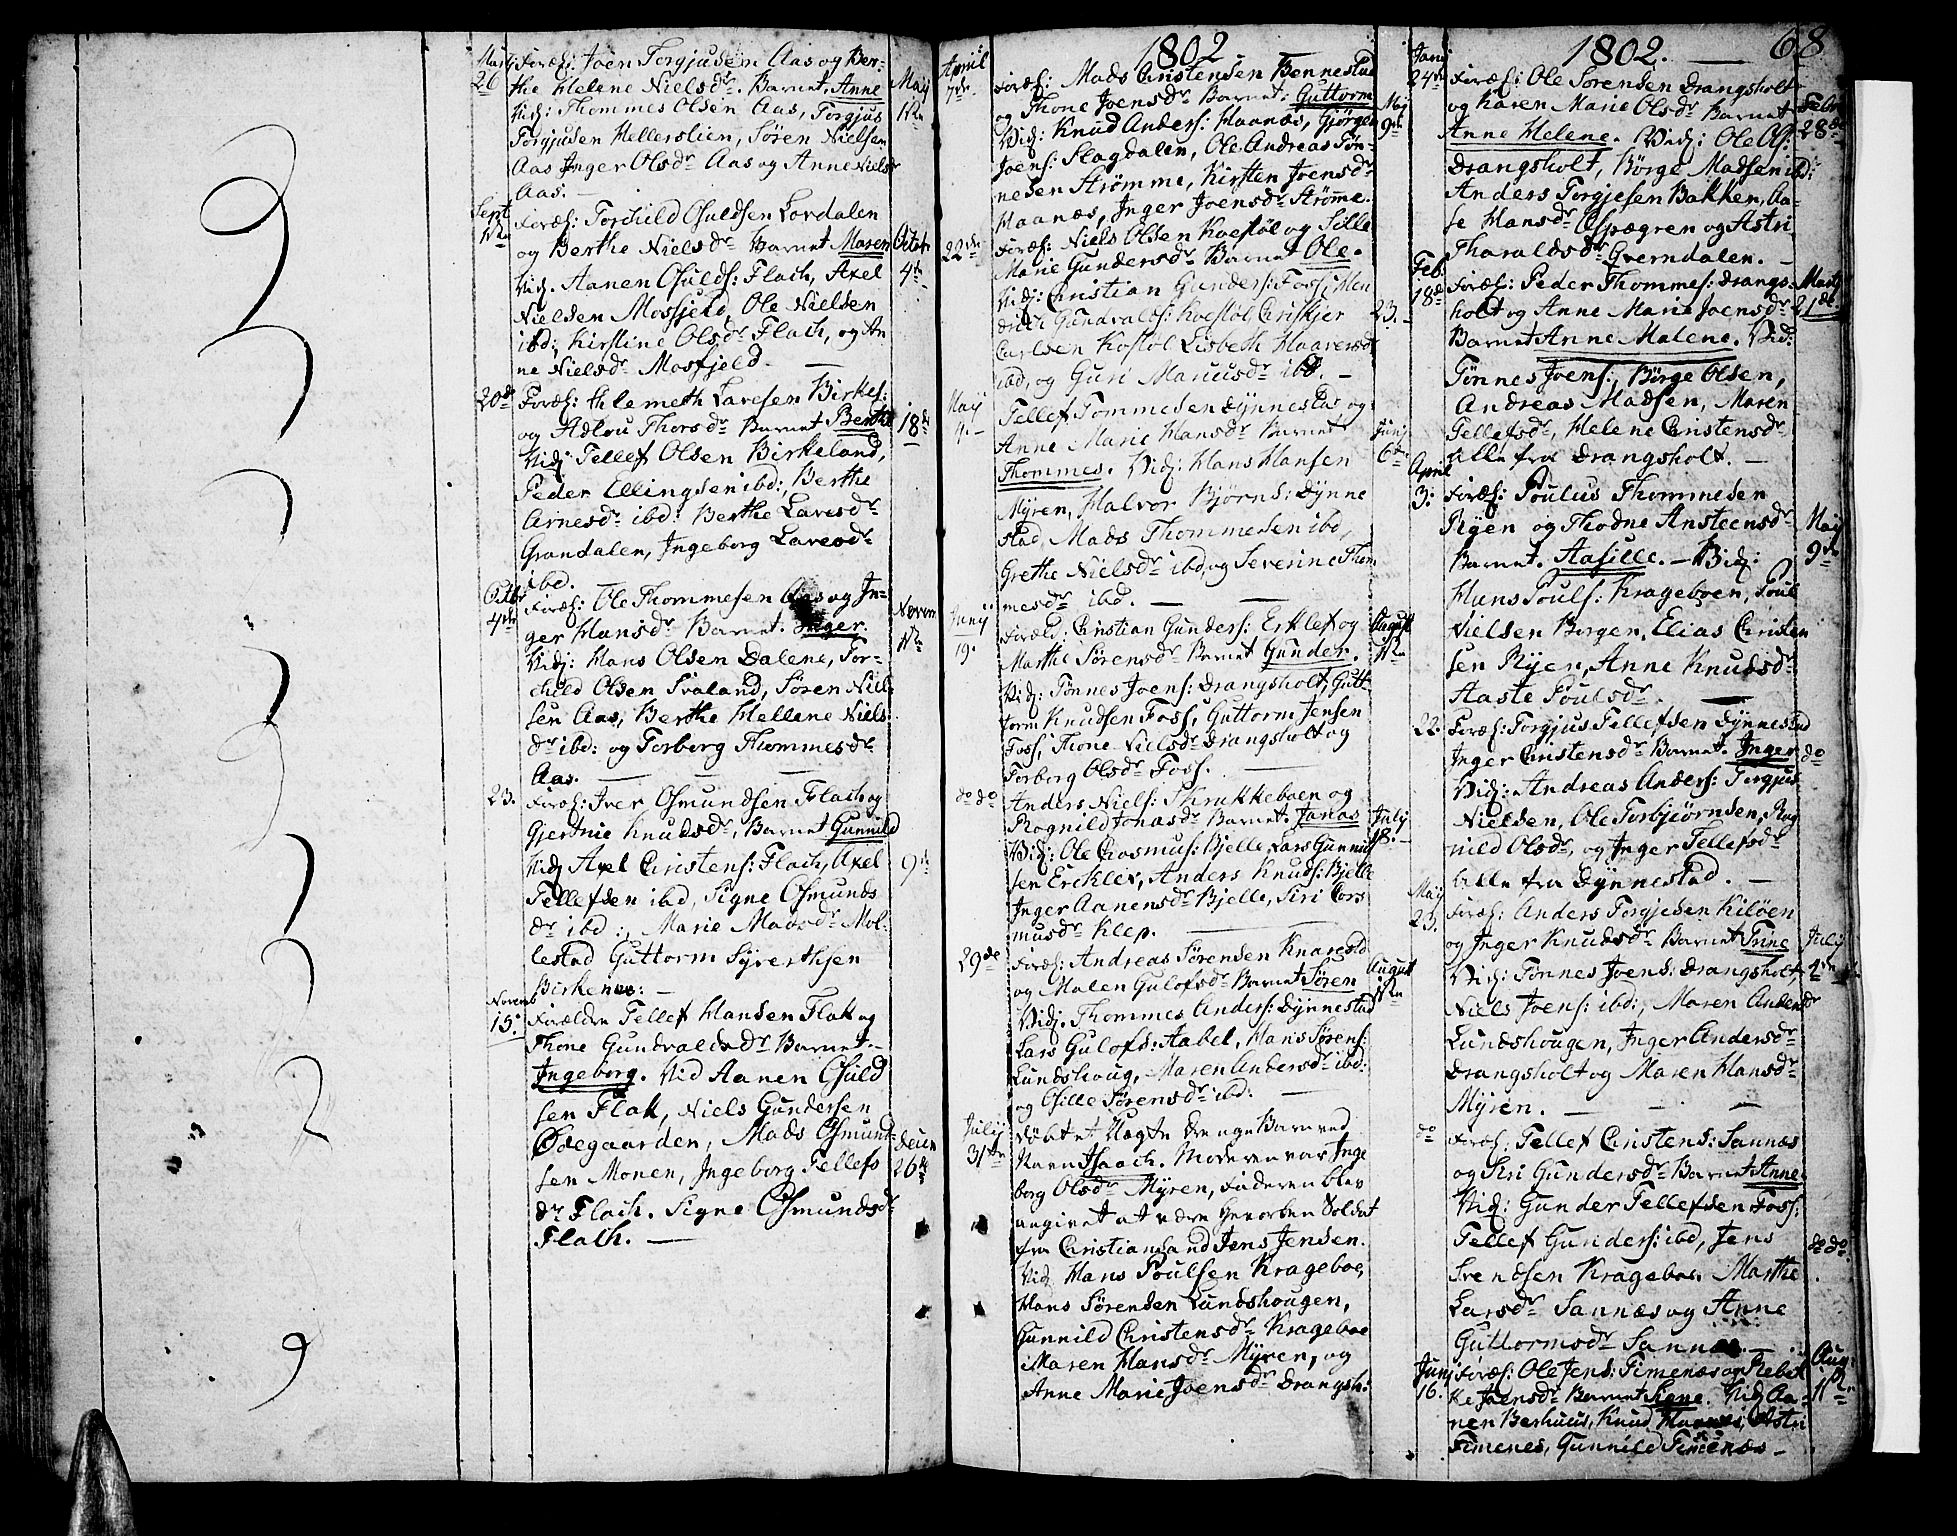 Martj
26
Foræl: Joen Torgjusen Aas og Ber-
the Helene Nielsdr. Barnet. Anne
Vid: Thommes Olsen Aas, Torgjus
Torgjusen Hellerslien, Søren Nielsen
Aas Inger Olsdr Aas og Anne Nielsdr
Aas. —
May
1te
Sept
1te
Foræl: Torchild Osuldsen Lordalen
og Berthe Nielsdr Barnet Maren
Vid. Aanen Osulds: Flach, Axel
Nielsen Mosfjeld, Ole Nielsen
ibd; Kirstine Olsdr Flach, og An
ne Nielsdr Mosfjeld. —
Octob
4de
20de
Foræl: Clemeth Larsen Birkel:
og Adlou Thorsdr Barnet Berthe
Vid: Tellef Olsen Birkeland,
Peder Ellingsen ibd: Berthe
Arnesdr ibd: Berthe Laresdr
Grandalen, Ingeborg Laresdr
ibd.
18de
Octbr
4de
Foræl: Ole Thommesen Aas og In-
ger Hansdr Barnet. Inger.
Vid: Hans Olsen Dalene, Tor-
child Olsen Svaland, Søren Niel-
sen Aas, Berthe Hellene Niels
dr ibd: og Torborg Thommesdr
Aas. — — —
Novem
1te
23.
Foræl: Iver Osmundsen Flach og
Gjertnie Knudsdr, Barnet Gunnild
Vid Axel Christens: Flach, Axel
Tellefsen ibd, Signe Osmunds
dr ibd:, Marie Madsdr Mol-
lestad Guttorm Syvertsen
Birkenes: —
9de
Novemb
15.
Forældre Tellef Hansen Flak og
Thone Gundvaldsdr Barnet-
Ingeborg. Vid Aanen Osuld
sen Flak, Niels Gundersen
Ødegaarden, Mads Osmund-
sen Monen, Ingeborg Tellefs
dr Flach. Signe Osmundsdr
Flach. —
Decem
26de
1802
April
7de
Foræl: Mads Christensen Bennestad
og Thone Joensdr Barnet: Guttorm
Vid: Knud Anders: Haanæs, Gjørgen
Joens: Slagdalen, Ole Andreas Søn-
nesen Strømme, Kirsten Joensdr
Haanæs, Inger Joensdr Strøme.
Mej
9de
22de
Foræl: Niels Olsen Kvestøl og Sille
Marie Gundersdr Barnet Ole.
Vid: Christian Gunders: Foss, Hen
drich Gundvalds: Kvestøl Cirskjer
Carlsen Kostøl Lisbeth Haaversdr
ibd, og Guri Mariusdr ibd. —
23.
Maij
4.
Tellef Tommesen Dynnestad og
Anne Marie Hansdr Barnet
Thommes. Vid: Hans Hansen
Myren, Halvor Bjørns: Dynne
stad, Mads Thommesen ibd,
Grethe Nielsdr ibd, og Severine Thom
mesdr ibd. — —
Junj
6te
Junij
19.
Foræld: Christian Gunders: Erklef og
Marthe Sørensdr Barnet Gunder.
Vid: Tønnes Joens: Drangsholt, Gutt-
torm Knudsen Foss, Guttorm Jensen
Foss, Thone Nielsdr Drangsholt og
Torborg Olsdr Foss. —
August
1te
do do
Anders Niels: Skrukkeboen og
Rognild Jonasdr Barnet. Jonas
Vid: Ole Crosmus: Bjelle, Lars Gunnuf
sen Ercklev, Anders Knuds: Bjelle
Inger Aanensdr Bjelle, Siri Cors
musdr Klep. —
July
18.
29de
Foræl: Andreas Sørensen Knarestd
og Malen Gulofsdr Barnet Søren
Vid: Thommes Anders: Dynnestad
Lars Gulofs: Aabel, Hans Sørens:
Lundshoug, Maren Andersdr ibd:
og Osille Sørensdr ibd: —
August
1te
Julij
31te
Døbt et Uægte drenge Barn ved
Navn Isaach. Moderen var Inge
borg Olsdr Myren, Faderen blev
angivet at være Gevorben Soldat
fra Christiansand Jens Jensen.
Vid Hans Poulsen Krageboe,
Hans Sørensen Lundshougen,
Gunnild Christensdr Krageboe
Maren Hansdr Myren, og
Anne Marie Joensdr Drangsh:
1802. — 68
Janij
24de
Foræl: Ole Sørensen Drangsholt
og Karen Marie Olsdr Barnet
Anne Helene. Vid: Ole Ol:
Drangsholt, Børge Madsen ibd:
Anders Torgjesen Bakken, Aa-
se Hansdr Ospægren og Astri
Tharaldsdr Gverndalen. —
Febr
28de
Feb.
18de
Foræl: Peder Thommes: Drangs-
holt og Anne Marie Joensdr
Barnet Anne Malene. Vid:
Tønnes Joens:, Børge Olsen,
Andreas Madsen, Maren
Tellefsdr, Helene Christensdr
alle fra Drangsholt. —
Martj
21de
April
3.
Foræl: Poulus Thommesen
Ryen og Thodne Ansteensdr
Barnet. Aasille. — Vid:
Hans Pouls: Krageboen, Poul
Nielsen Borgen, Elias Christen
sen Ryen, Anne Knudsdr
Aaste Poulsdr. —
May
9de
22.
Foræl: Torgjus Tellefsen Dynnestad
Inger Christensdr Barnet. Inger
Vid: Andreas Anders: Torgjus
Nielsen, Ole Torbjørnsen, Rag
nild Olsdr, og Inger Tellefsdr
alle fra Dynnestad. —
do
May
25.
Foræl: Anders Torgjesen Kiløen
og Inger Knudsdr Barnet Tone
Vid: Tønnes Joens: Drangsholt,
Niels Joens: ibd:, Maren Andersdr
Lundshougen, Inger Andersdr
Drangsholt og Maren Hansdr
Myren. — — —
Julij
4de
do
Foræl: Tellef Christens: Sannæs
og Siri Gundersdr Barnet Anne
Vid: Gunder Tellefsen Foss:
Tellef Gunders: ibd, Jens
Svendsen Krageboe. Marthe
Larsdr Sannæs og Anne
Guttormsdr Sannæs. —
do do
Junj
16.
Foræl: Ole Jens: Timenæs og Rebek
ke Joensdr Barnet Signe. Vid Aa-
nen Berhuus, Knud Haanæs, Astri
Timenes, Gunnild Timenæs —
Aug:
1te